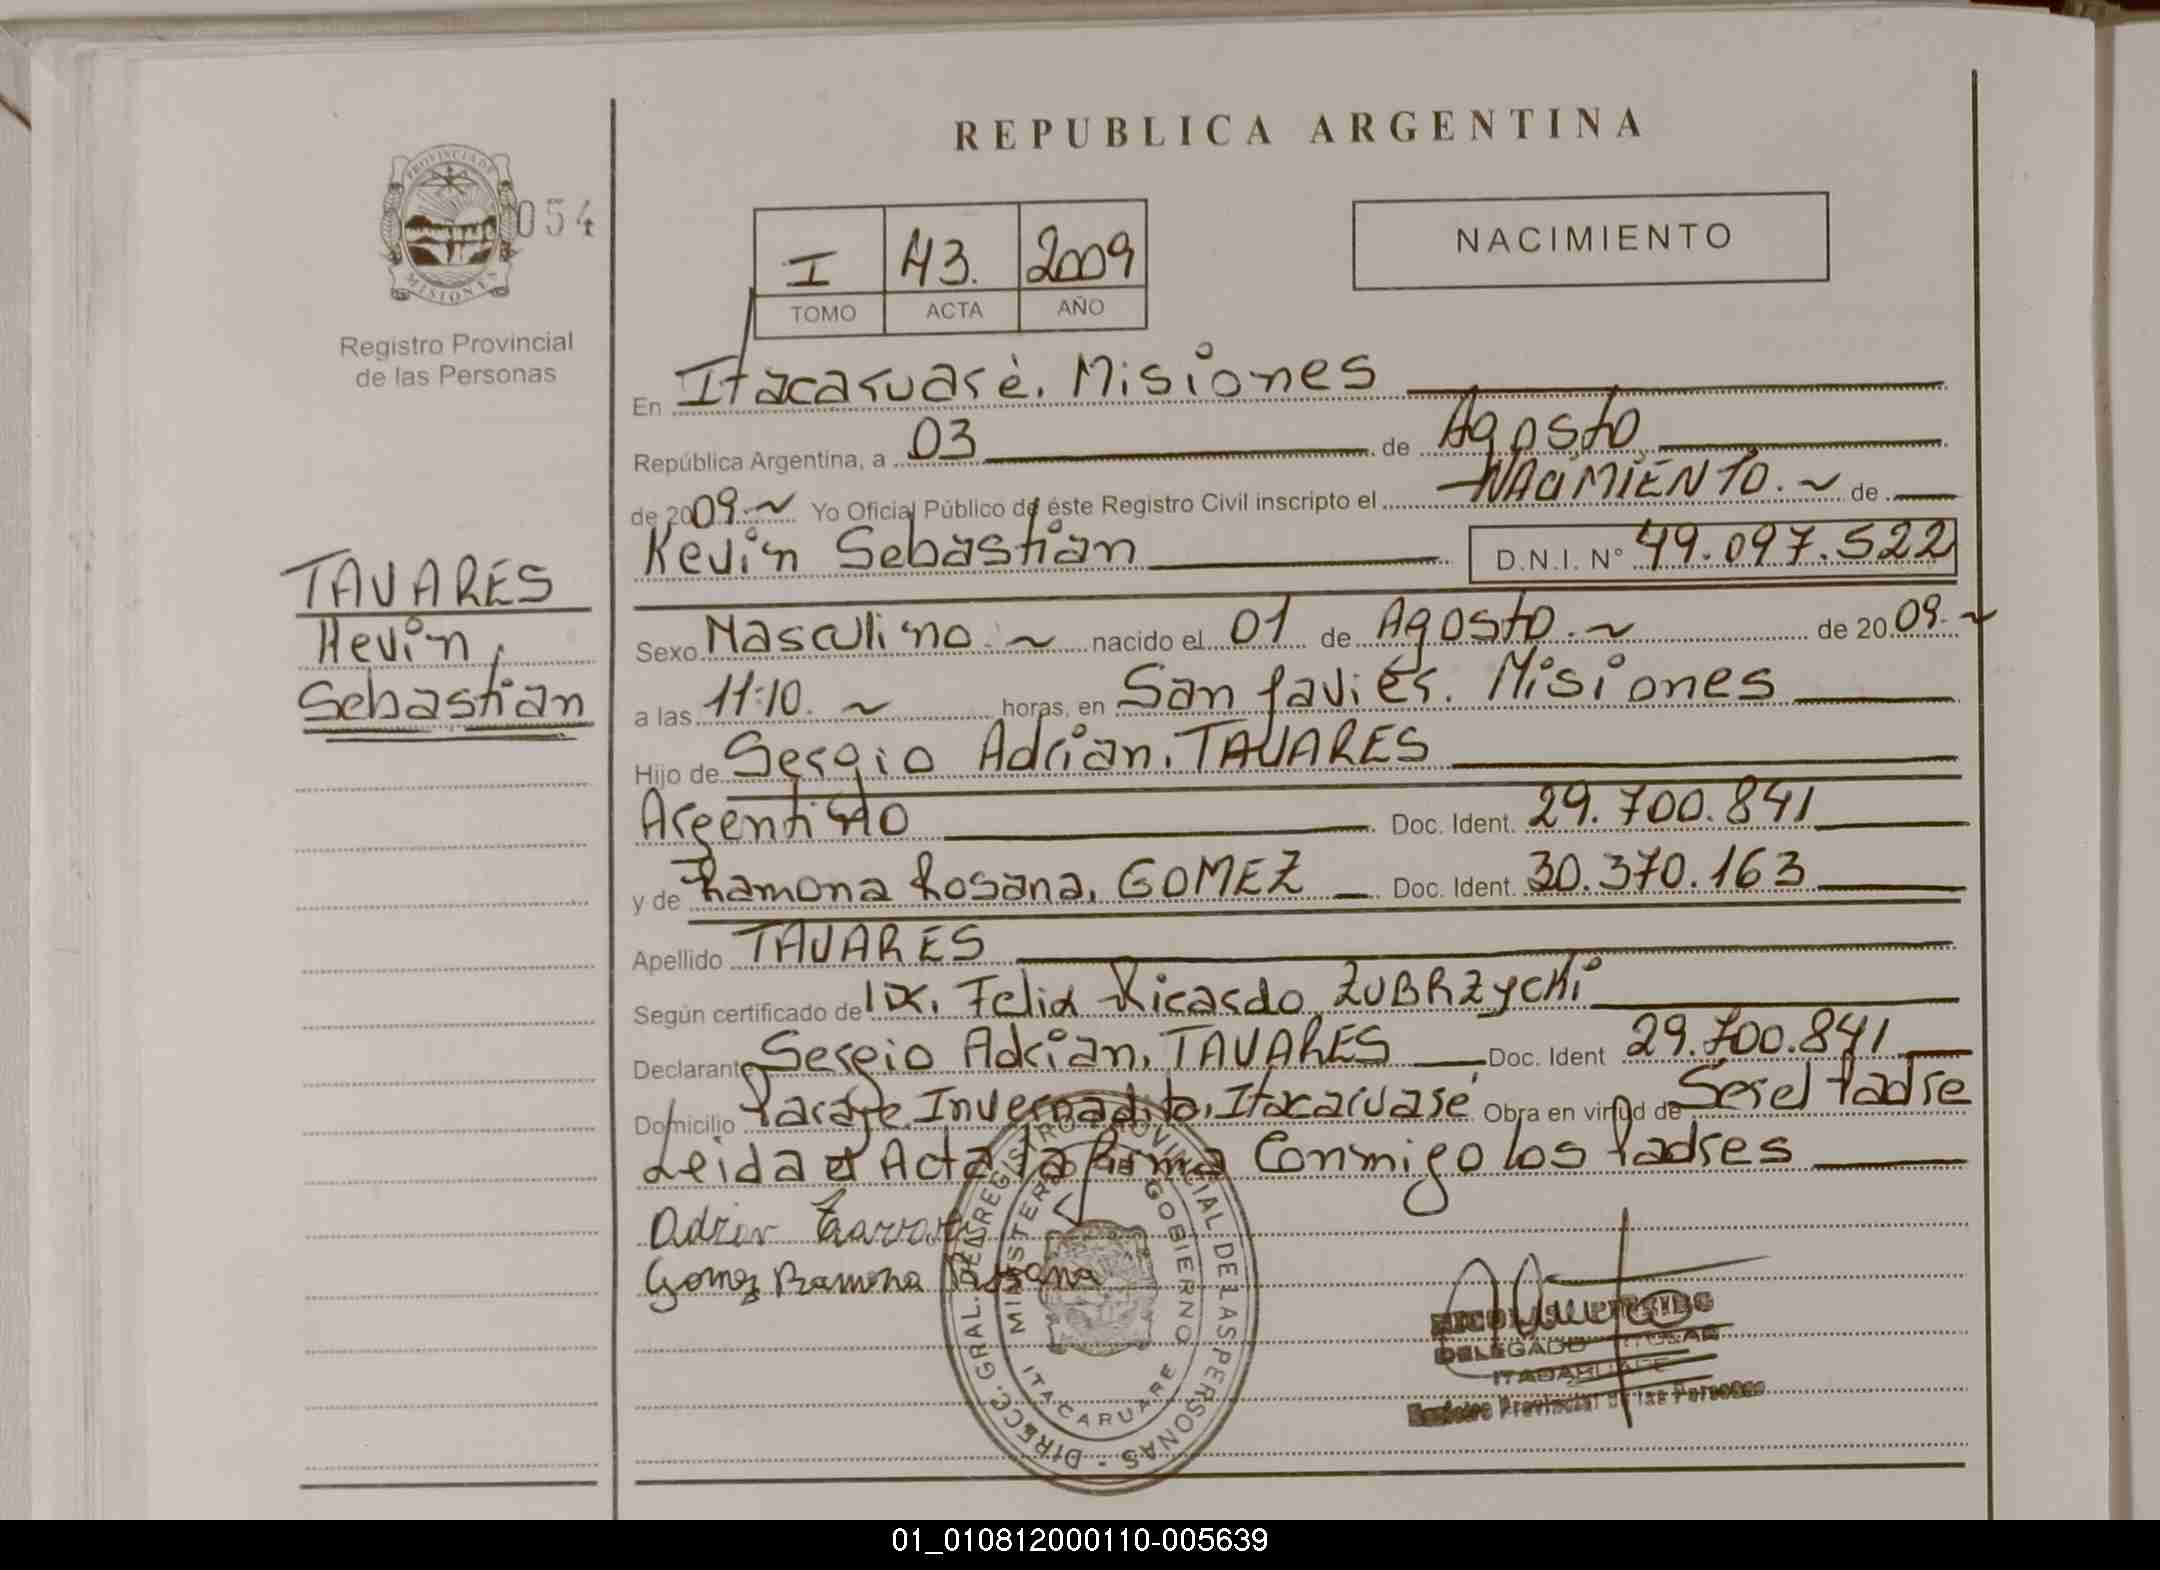 REPUBLICA ARGENTINA
PROVINCIA DE
MISIONES
054
Registro Provincial
de las Personas
I 43. 2009
TOMO ACTA AÑO
NACIMIENTO
TAVARES
Kevin,
Sebastian
En Itacaruarè. Misiones
República Argentina, a 03 de Agosto
de 2009 ~ Yo Oficial Público de éste Registro Civil inscripto el NACIMIENTO. ~ de
Kevin Sebastian D.N.I. N° 49.097.522
Sexo Masculino. ~ nacido el 01 de Agosto. ~ de 2009. ~
a las 11:10. ~ horas, en San Javier. Misiones
Hijo de Sergio Adrian. TAVARES
Argentino Doc. Ident. 29.700.841
y de Ramona Rosana, GOMEZ Doc. Ident. 30.370.163
Apellido TAVARES
Según certificado de Dr. Felix Ricardo ZUBRZycKi
Declarante Sergio Adrian, TAVARES Doc. Ident 29.700.841
Domicilio Paraje Invernadita, Itacaruaré Obra en virtud de Ser el Padre
Leida el Acta la firma Conmigo los Padres
Gomez Ramona Rosana
DIRECC. GRAL. DEL REGISTRO PROVINCIAL DE LAS PERSONAS
MINISTERIO DE GOBIERNO
ITACARUARE
DELEGADO TITULAR
ITACARUARE
Registro Provincial de las Personas
01_010812000110-005639